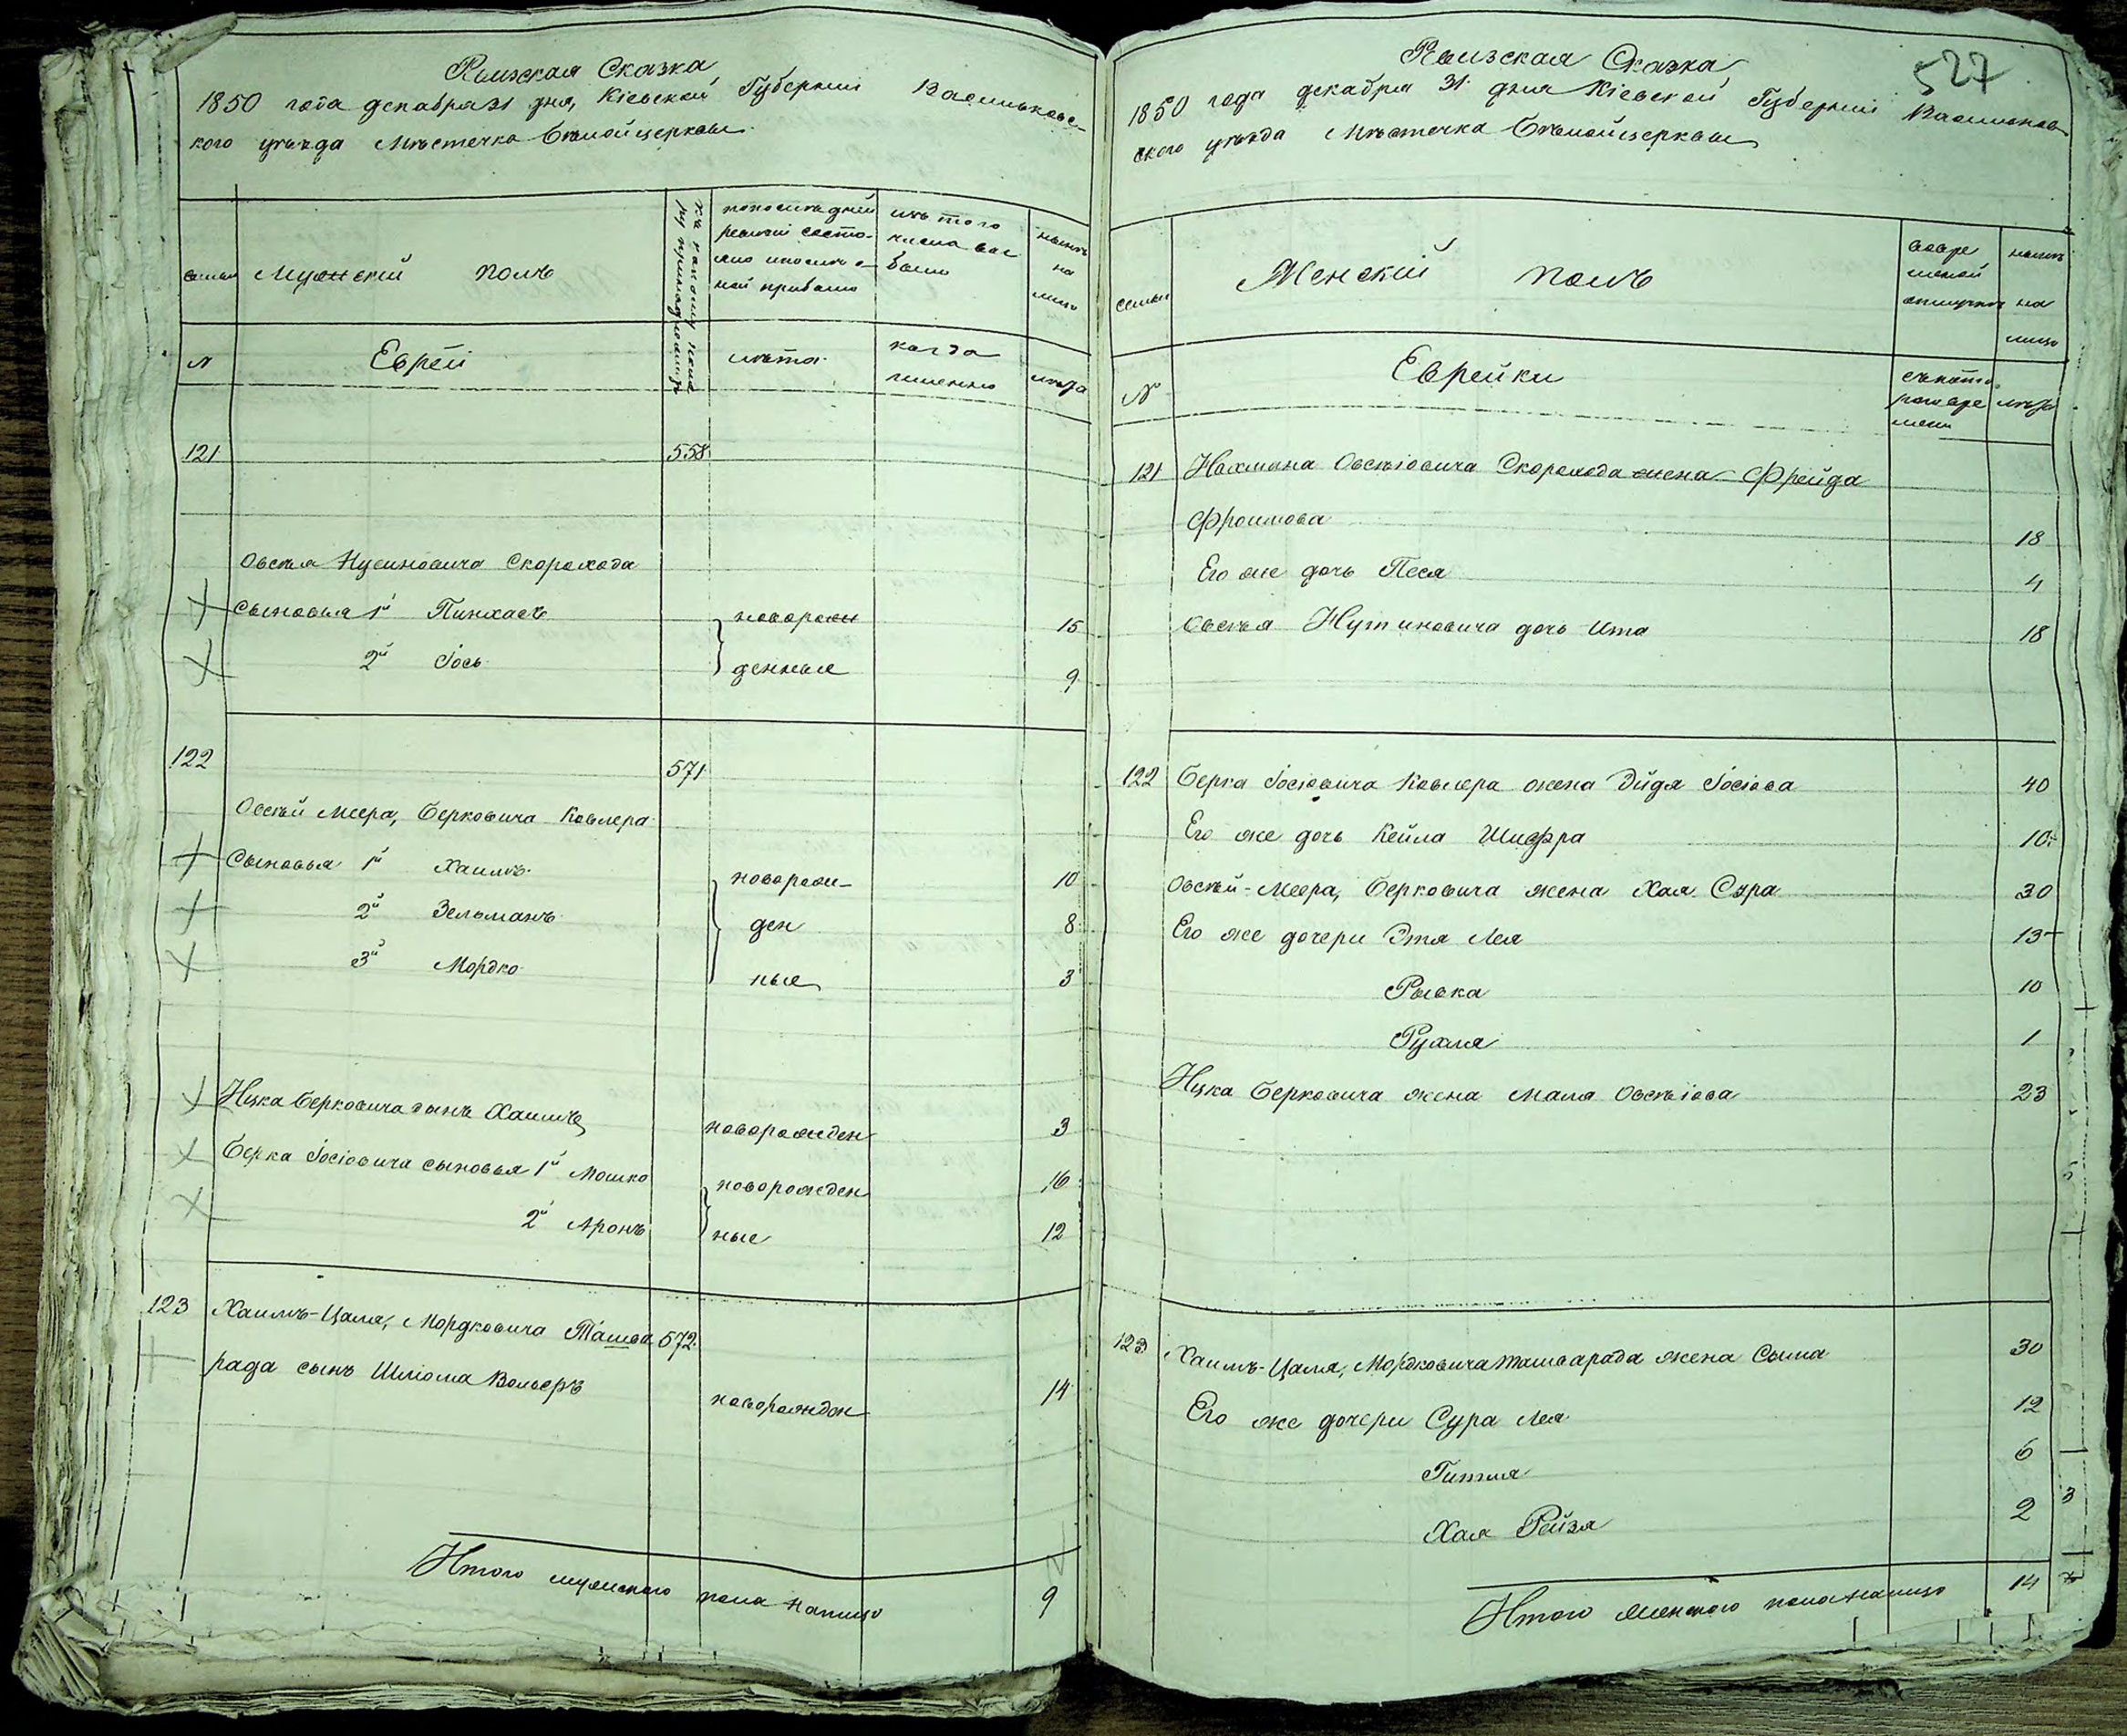 Ревизская Сказка
1850 года декабря 31 дня, Кіевской Губерніи Васильковс-
кого уѣзда Мѣстечка Бѣлойцеркви
семьи
Мужескій полъ
по послѣдней
ревизіи состо-
яло и послѣ о-
ной прибыло
изъ того
числа вы
было
нынѣ
на
лицо
N
Евреи
лѣта
когда
именно
лѣта
121
558
Овсѣя Нусиновича Скорохода
Сыновья 1й Пинхасъ
новорож
15
2й Іось
денные
9
122
571
Овсѣй Меера, Берковича Ковлера
Сыновья 1й Хаимъ
новорож-
10
2й Зельманъ
ден
8
3й Мордко
ные
3
Ицка Берковича сынъ Хаимъ
новорожден
3
Берка Іосіовича сыновья 1й Мошко
новорожден
16
2й Аронъ
ные
12
123
Хаимъ-Цаля, Мордковича Ташва
572
рада сынъ Шліома Вольеръ
новорожден
14
Итого мужеского пола налицо
9
527
Ревизская Сказка
1850 года декабря 31 дня Кіевской Губерніи Васильков-
ского уѣзда Мѣстечка Бѣлойцеркви
семьи
Женскій полъ
во вре
менной
отлучкѣ
нынѣ
на
лицо
N
Еврейки
съ кото
раго вре
мени
лѣта
121 Нахмана Овсѣіовича Скорохода жена Фрейда
Фроимова
18
Его же дочь Песя
4
Овсѣя Нутиновича дочь Ита
18
122 Берка Іосіовича Ковлера жена Эйдя Іосіова
40
Его же дочь Кейла Шифра
10
Овсѣй-Меера, Берковича жена Хая Сура
30
Его же дочери Этя Лея
13
Рывка
10
Рухля
1
Ицка Берковича жена Маля Овсѣіова
23
123 Хаимъ-Цаля, Мордковича Ташварада жена Сыма
30
Его же дочери Сура Лея
12
Гитля
6
Хая Рейзя
2
Итого женского пола налицо
14